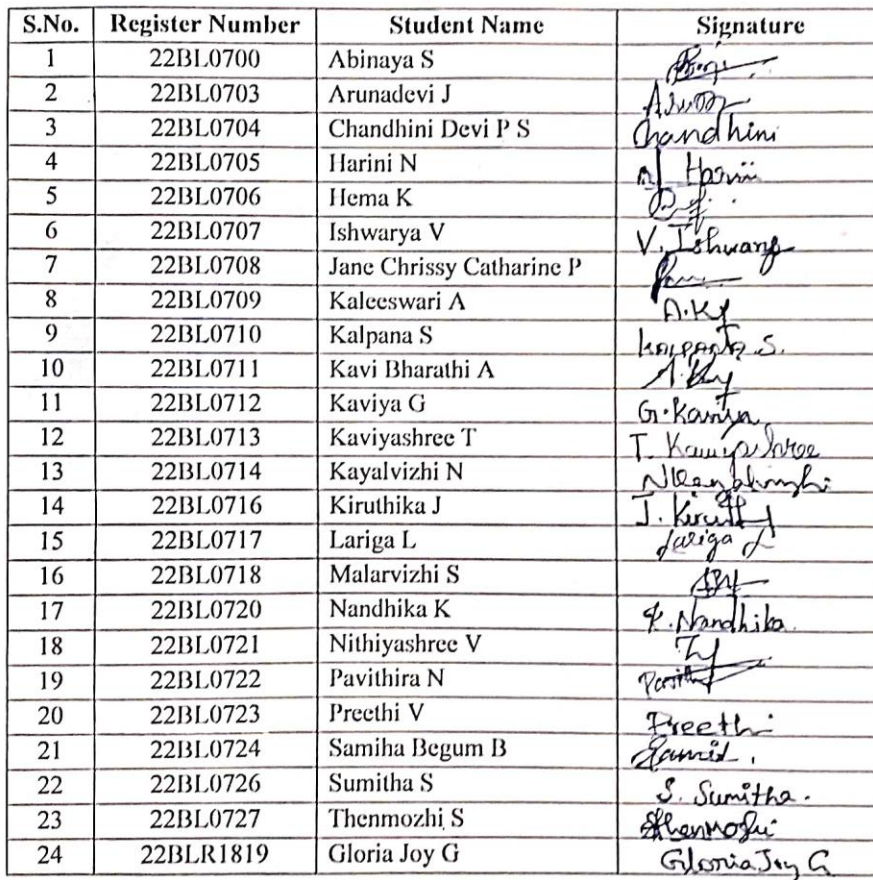 S.No. Register Number Student Name Signature
1 22BL0700 Abinaya S
2 22BL0703 Arunadevi J
3 22BL0704 Chandhini Devi P S Chandhini
4 22BL0705 Harini N
5 22BL0706 Hema K
6 22BL0707 Ishwarya V V. Ishwarya
7 22BL0708 Jane Chrissy Catharine P
8 22BL0709 Kaleeswari A
9 22BL0710 Kalpana S
10 22BL0711 Kavi Bharathi A
11 22BL0712 Kaviya G G. Kaviya
12 22BL0713 Kaviyashree T T. Kaviyashree
13 22BL0714 Kayalvizhi N
14 22BL0716 Kiruthika J
15 22BL0717 Lariga L Lariga L
16 22BL0718 Malarvizhi S
17 22BL0720 Nandhika K K. Nandhika.
18 22BL0721 Nithiyashree V
19 22BL0722 Pavithira N
20 22BL0723 Preethi V Preethi
21 22BL0724 Samiha Begum B
22 22BL0726 Sumitha S S. Sumitha.
23 22BL0727 Thenmozhi S
24 22BLR1819 Gloria Joy G Gloria Joy G